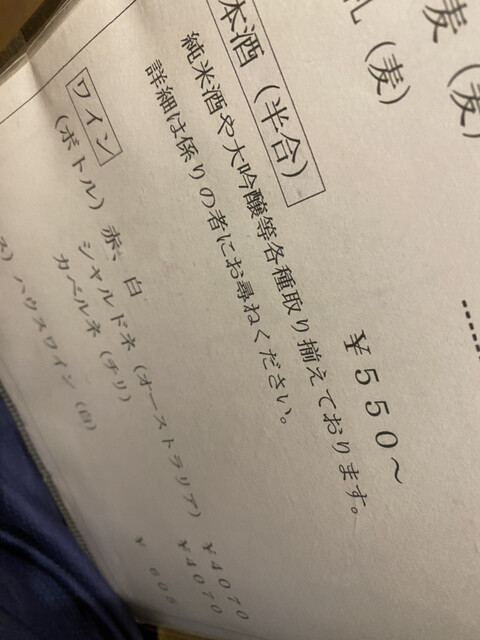 麦（麦）
（麦）
本酒（半合） ￥５５０～
純米酒や大吟醸等各種取り揃えております。
詳細は係りの者にお尋ねください。
ワイン
（ボトル）赤、白
シャルドネ（オーストラリア） ￥４０７０
カベルネ（チリ） ￥４０７０
ス）ハウスワイン（白） ￥